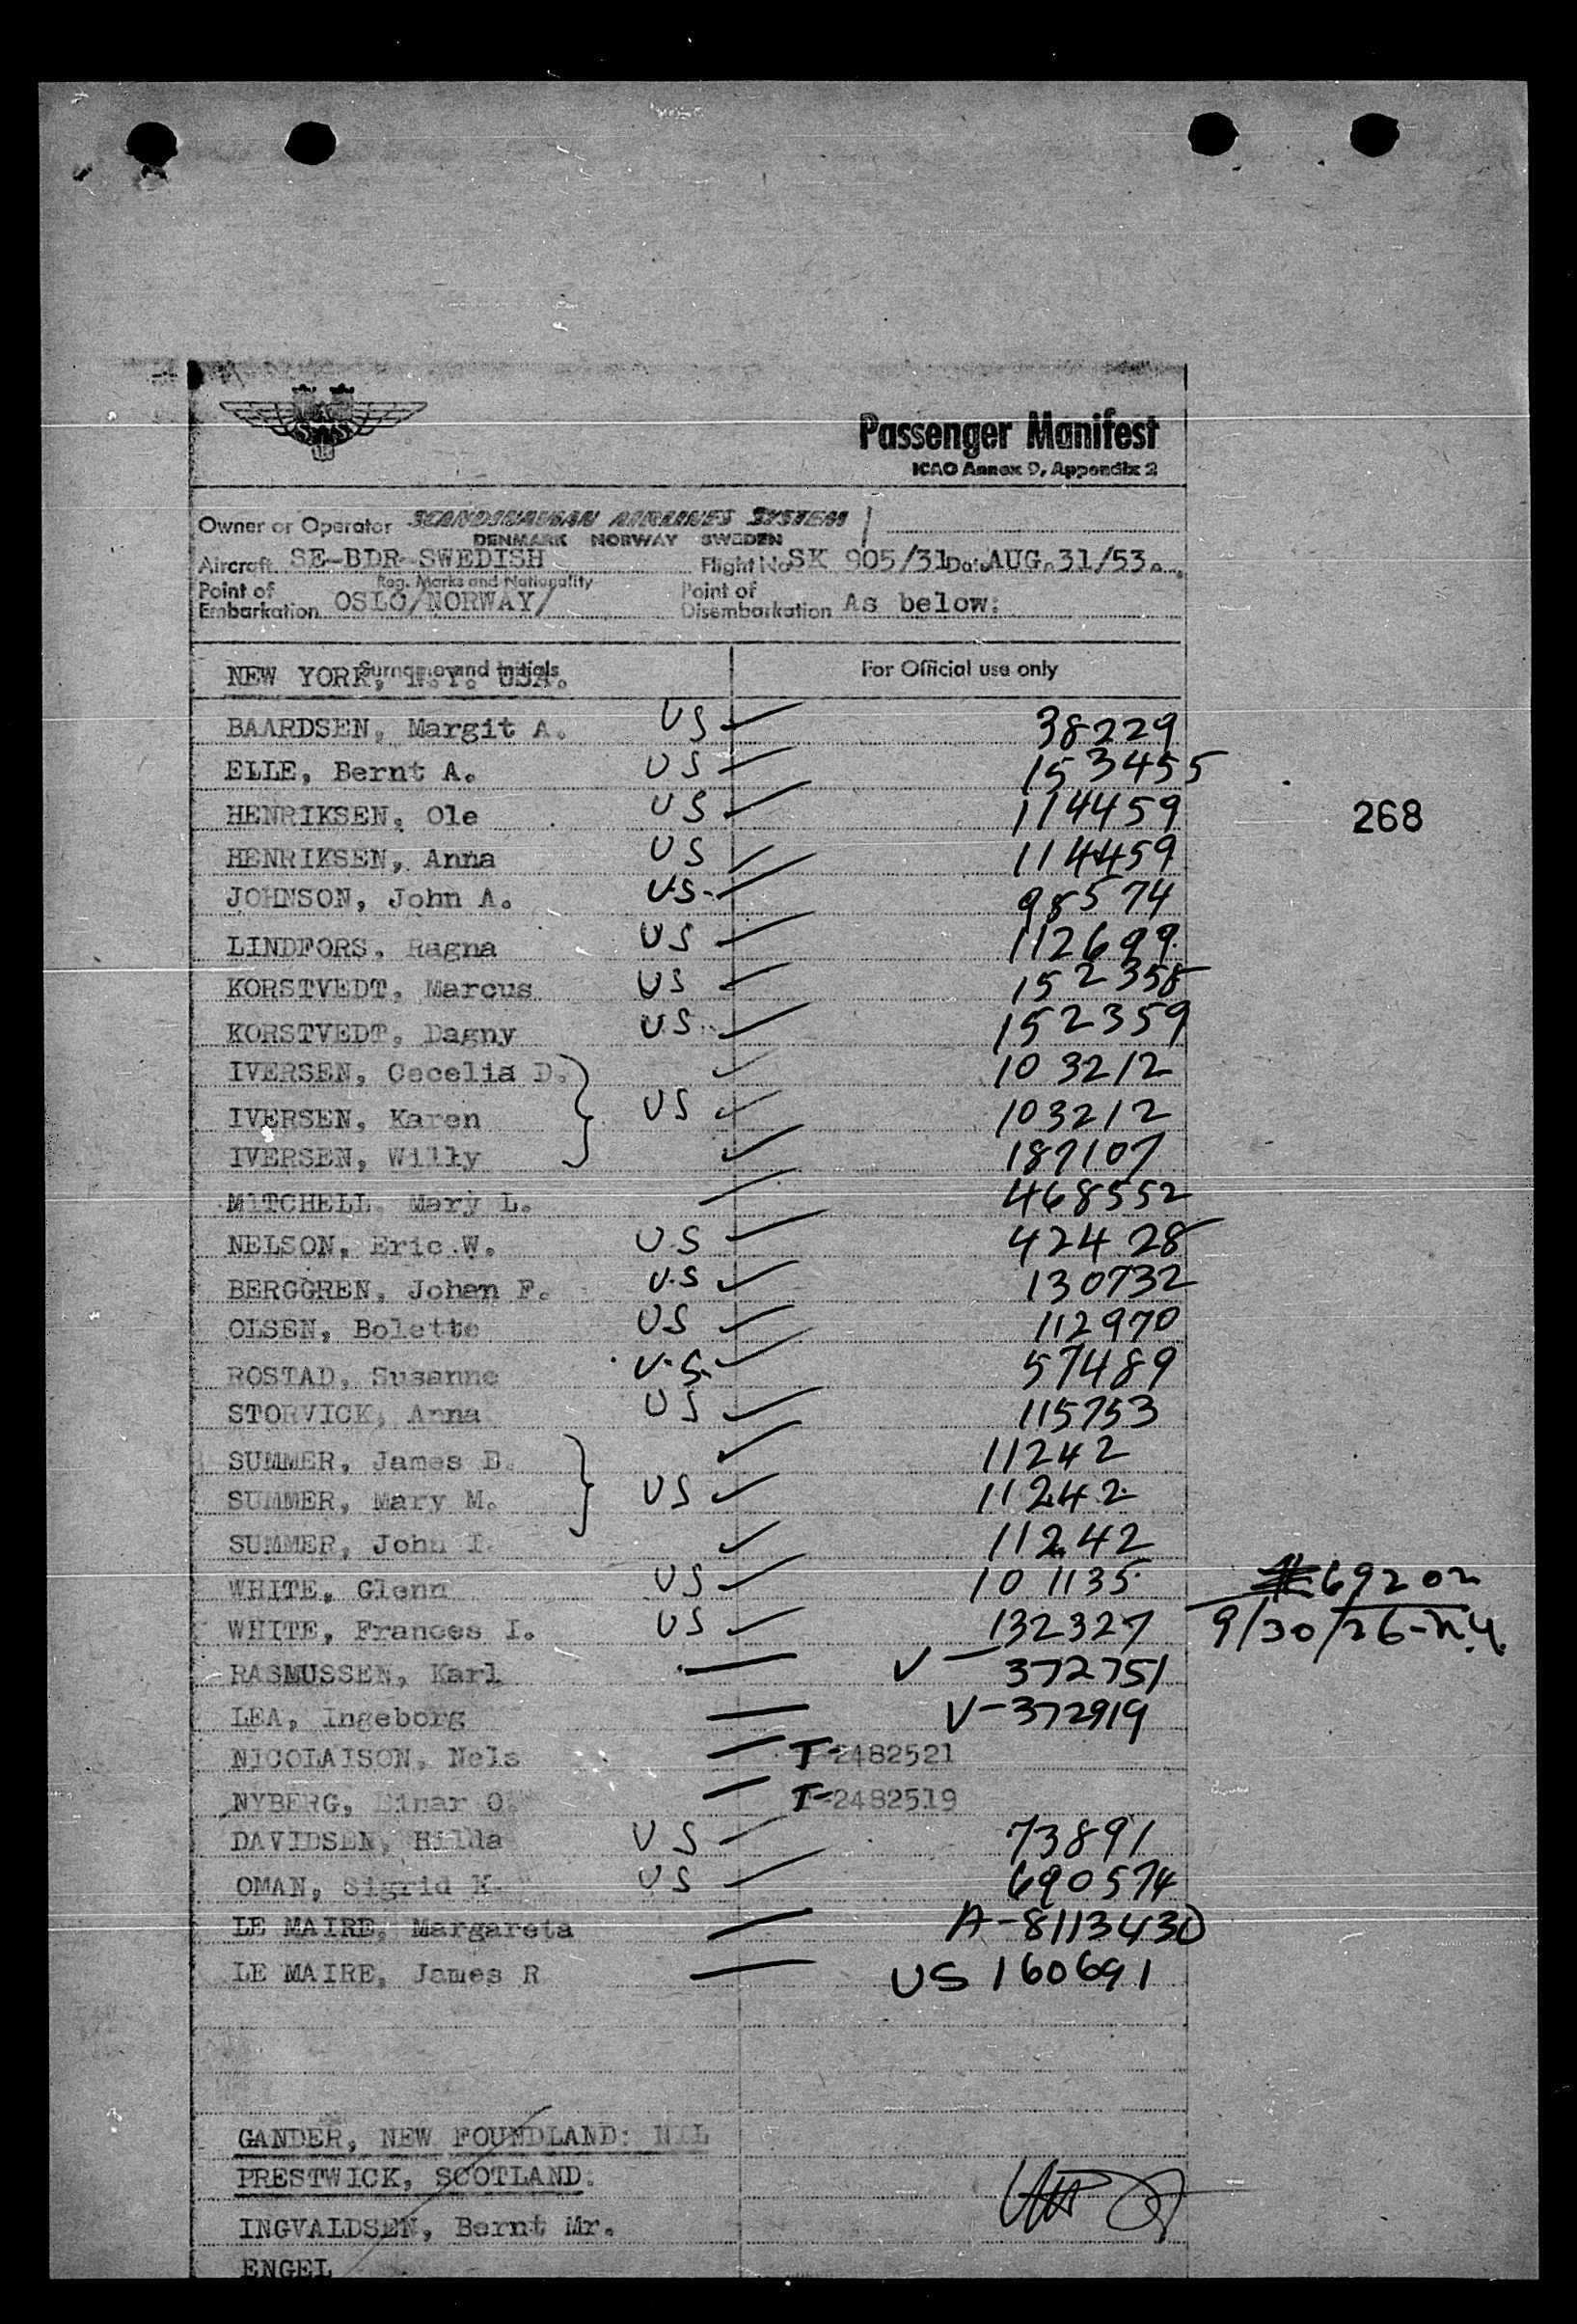 Passenger Manifest
ICAO Annex 9, Appendix 2
Owner or Operator SCANDINAVIAN AIRLINES SYSTEM
DENMARK NORWAY SWEDEN
Aircraft SE-BDR-SWEDISH Flight No SK 905/31 Date AUG. 31/53.
Reg. Marks and Nationality
Point of Embarkation OSLO/NORWAY/ Point of Disembarkation As below:
Surname and Initials For Official use only
NEW YORK, N.Y. USA.
BAARDSEN, Margit A. US 38229
ELLE, Bernt A. US 153455
HENRIKSEN, Ole US 114459
268
HENRIKSEN, Anna US 114459
JOHNSON, John A. US. 98574
LINDFORS, Ragna US 112699
KORSTVEDT, Marcus US 152358
KORSTVEDT, Dagny U.S. 152359
IVERSEN, Cecelia D. 103212
IVERSEN, Karen US 103212
IVERSEN, Willy 187107
MITCHELL, Mary L. 468552
NELSON, Eric W. U.S 42428
BERGGREN, Johan F. U.S 130732
OLSEN, Bolette US 112970
ROSTAD, Susanne U.S. 57489
STORVICK, Anna US 115753
SUMMER, James E. 11242
SUMMER, Mary M. US 11242
SUMMER, John I. 11242
WHITE, Glenn US 101135 #69202
WHITE, Frances I. US 132327 9/30/26-N.Y.
RASMUSSEN, Karl V-372751
LEA, Ingeborg V-372919
NICOLAISON, Nels T-2482521
NYBERG, Einar O. T-2482519
DAVIDSEN, Hilda US 73891
OMAN, Sigrid K. US 690574
LE MAIRE, Margareta A-8113430
LE MAIRE, James R US 160691
GANDER, NEW FOUNDLAND: NIL
PRESTWICK, SCOTLAND:
INGVALDSEN, Bernt Mr.
ENGEL